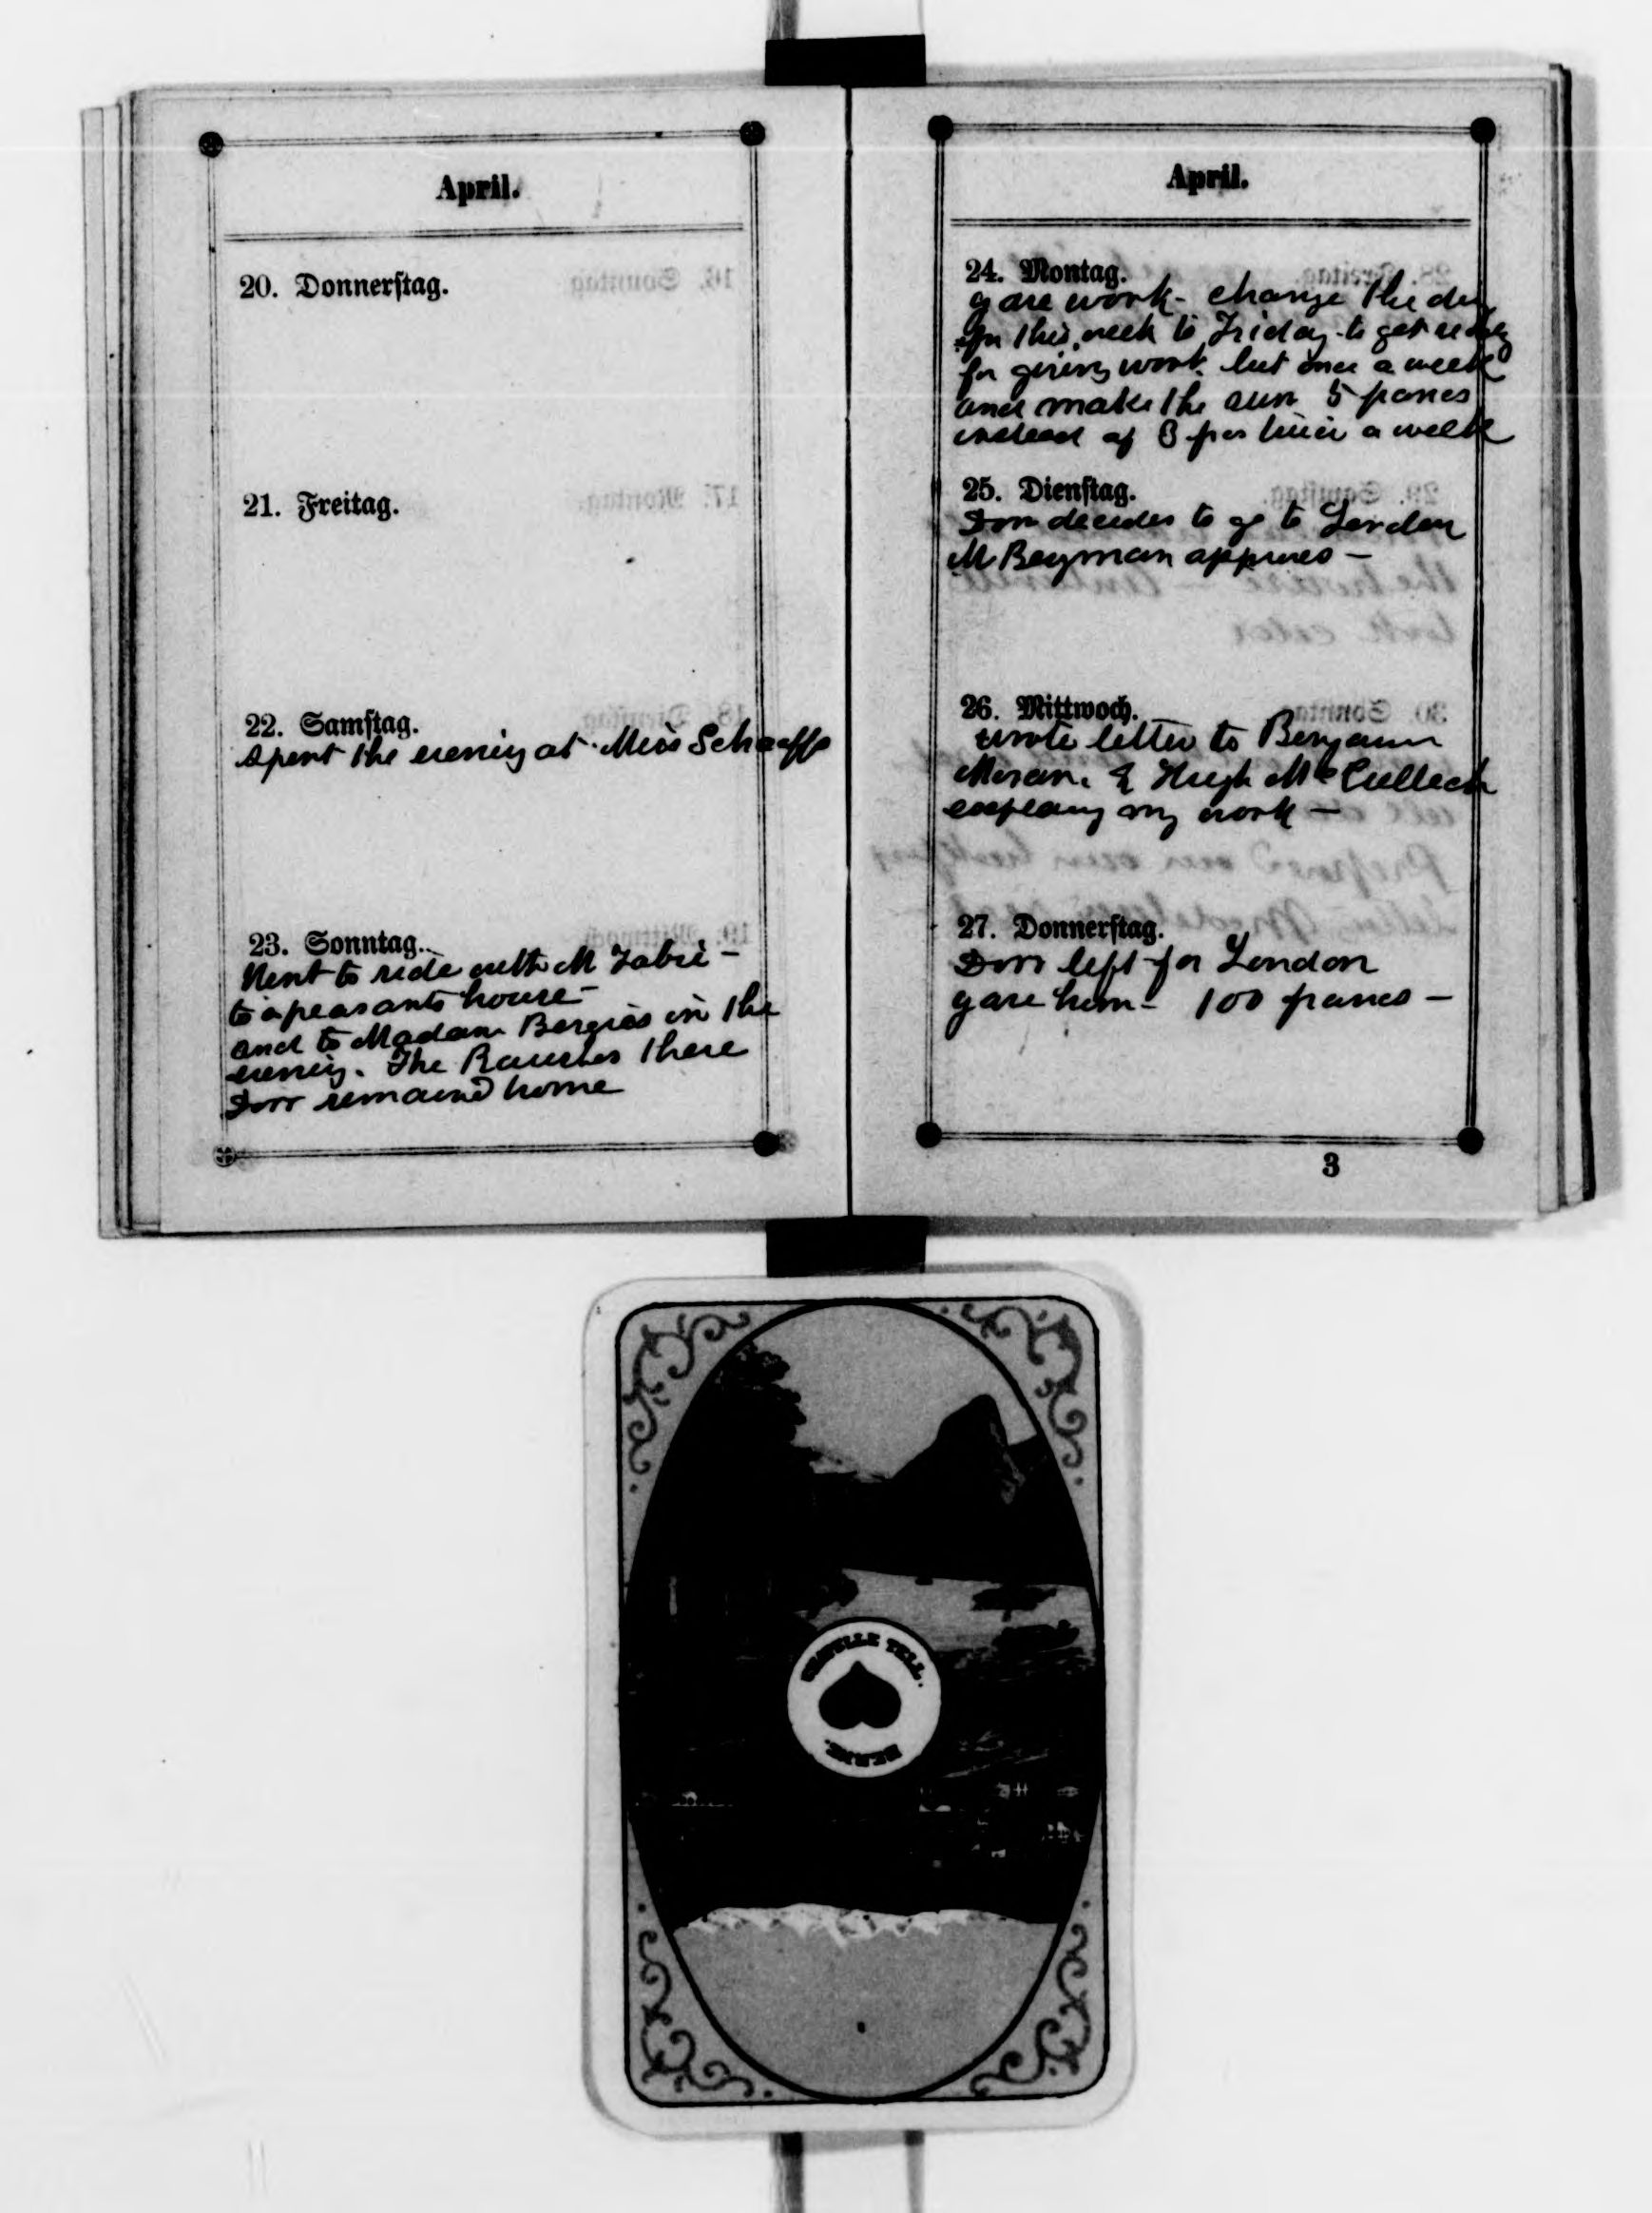 April.
20. Donnerſtag.
21. Freitag.
22. Samſtag.
Spent the evening at Miss Schaeffs
23. Sonntag.
Went to ride with M Fabri –
to a peasants house –
and to Madam Bergies in the
evening. The Rauschs there
Dorr remained home
April.
24. Montag.
gave work – change the day
for this week to Friday to get ready
for giving work but once a week
and make the sum 5 francs
instead of 3 frs twice a week
25. Dienſtag.
Dorr decides to go to London
M Bergman approves –
26. Mittwoch.
wrote letter to Benjamin
Moran & Hugh McCulloch
explaing my work –
27. Donnerſtag.
Dorr left for London
gave him – 100 francs –
3
CHAPELLE TELL.
BERNE.